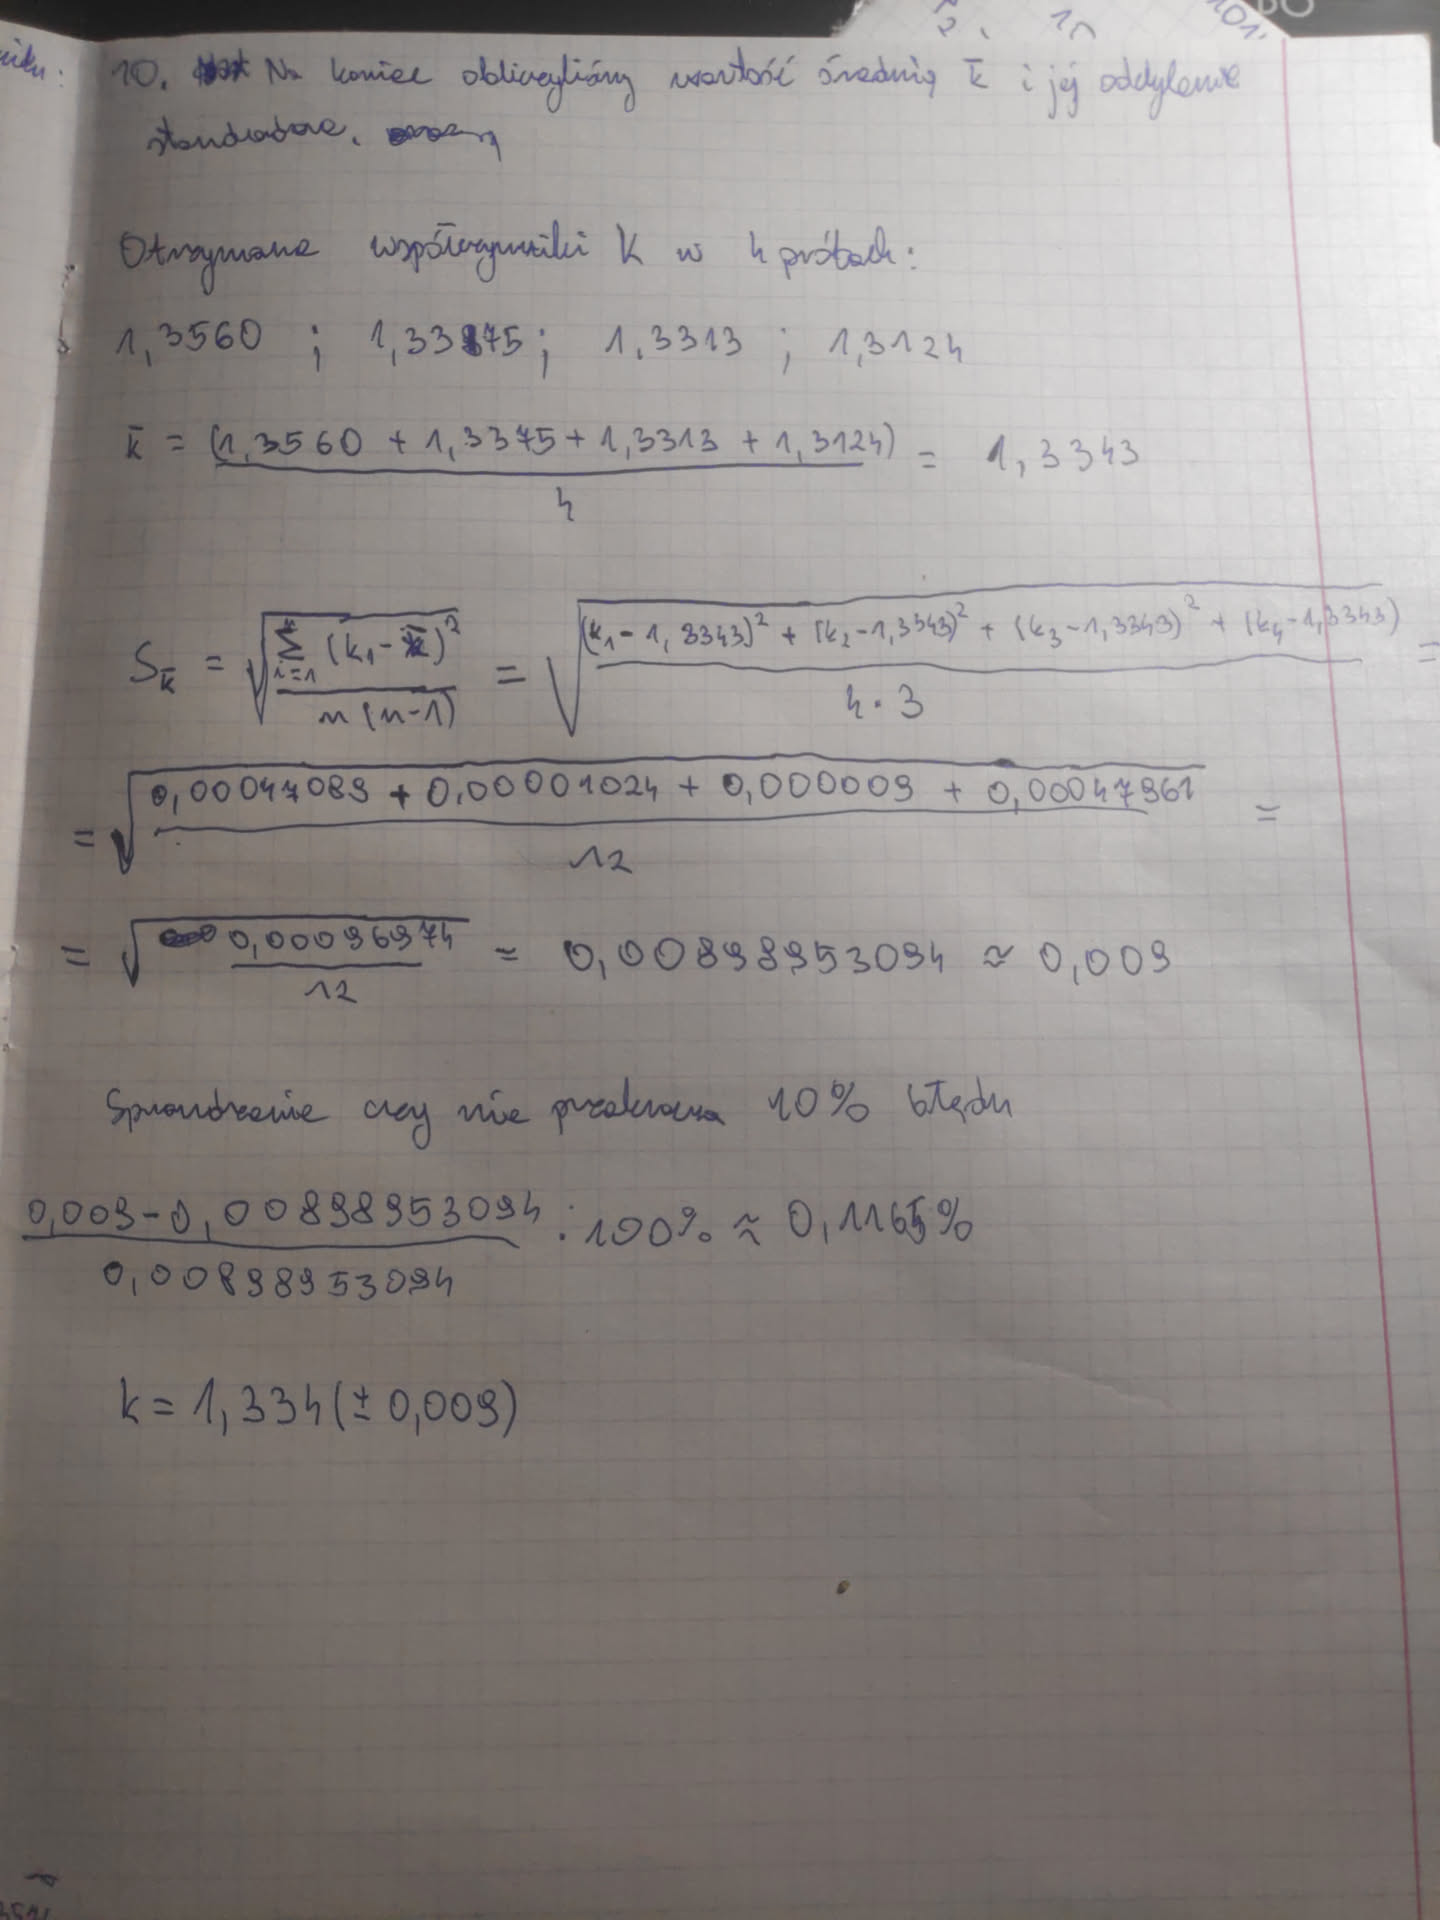 10. Na koniec obliczyliśmy wartość średnią k̄ i jej odchylenie
standardowe.
Otrzymane współczynniki K w 4 próbach:
1,3560 ; 1,33375 ; 1,3313 ; 1,3124
k̄ = (1,3560 + 1,3375 + 1,3313 + 1,3124) / 4 = 1,3343
S_k̄ = √( Σ_{i=1}^{4} (k₁ - k̄)² / n(n-1) ) = √( (k₁-1,3343)² + (k₂-1,3343)² + (k₃-1,3343)² + (k₄-1,3343) / 4·3 ) =
= √( 0,00047089 + 0,00001024 + 0,000009 + 0,00047961 / 12 ) =
= √( 0,00096974 / 12 ) ≈ 0,00898953094 ≈ 0,009
Sprawdzenie czy nie przekracza 10% błędu
0,009-0,00898953094 / 0,00898953094 · 100% ≈ 0,1165%
k = 1,334(±0,009)